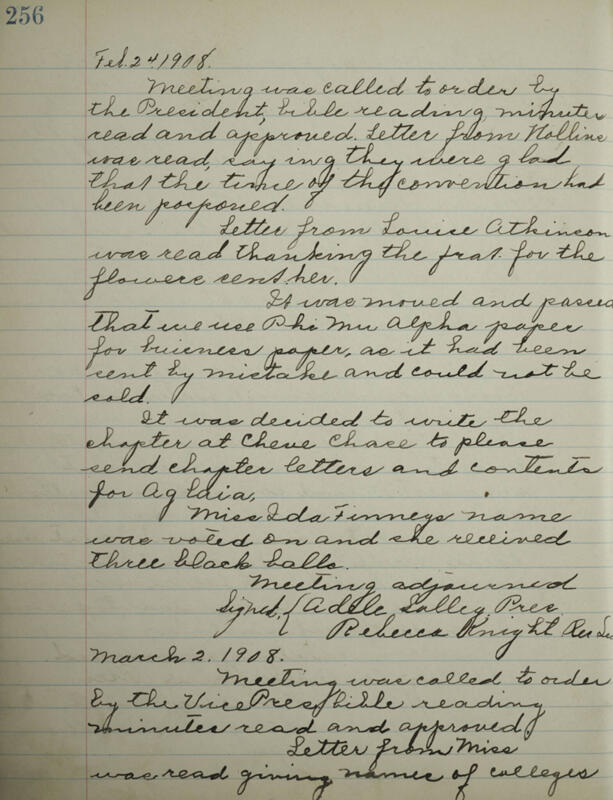 256
Feb. 24. 1908.
Meeting was called to order by
the President, bible reading, minutes
read and approved. Letter from Hollins
was read, saying they were glad
that the time of the convention had
been posponed.
Letter from Louise Atkinson
was read thanking the frat. for the
flowers sent her.
It was moved and passed
that we use Phi Mu Alpha paper
for buisness paper, as it had been
sent by mistake and could not be
sold.
It was decided to write the
chapter at Cheve Chase to please
send chapter letters and contents
for Aglaia.
Miss Ida Finneys name
was voted on and she received
three black balls.
Meeting adjourned
Signed, { Adele Salley Pres.
Rebecca Knight Rec Sec
March 2. 1908.
Meeting was called to order
by the Vice Pres, bible reading
minutes read and approved
Letter from Miss
was read giving names of colleges